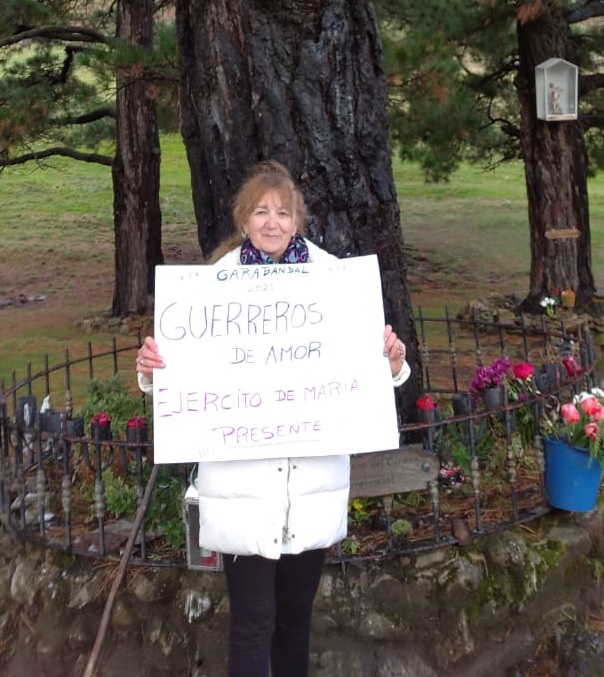 GARABANDAL
2021
GUERREROS
DE AMOR
EJERCITO DE MARIA
PRESENTE